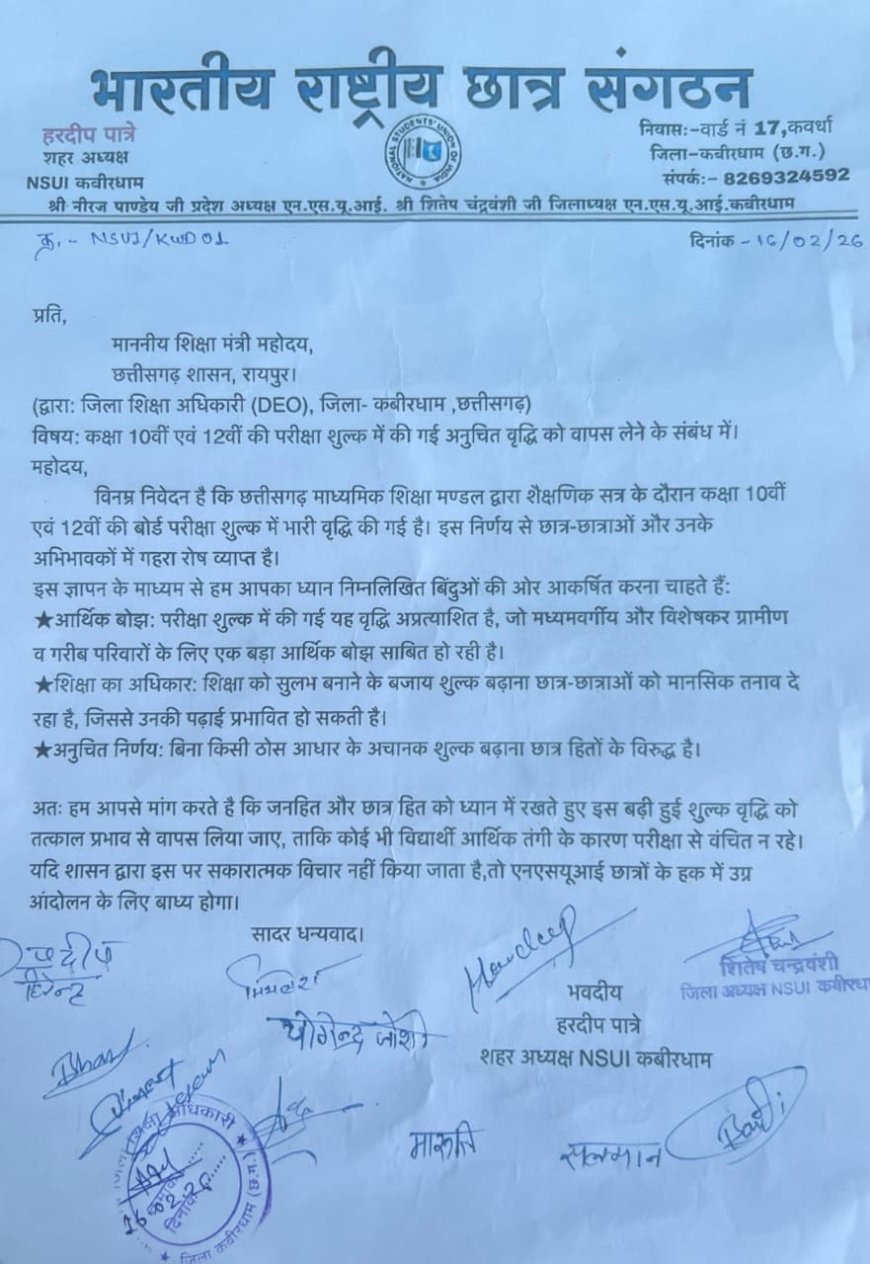 भारतीय राष्ट्रीय छात्र संगठन
हरदीप पात्रे
शहर अध्यक्ष
NSUI कबीरधाम
NATIONAL STUDENTS' UNION OF INDIA
निवासः-वार्ड नं 17,कवर्धा
जिला-कबीरधाम (छ.ग.)
संपर्कः- 8269324592
श्री नीरज पाण्डेय जी प्रदेश अध्यक्ष एन.एस.यू.आई. श्री शितेष चंद्रवंशी जी जिलाध्यक्ष एन.एस.यू.आई.कबीरधाम
क्र. - NSUI/KWD01
दिनांक - 16/02/26
प्रति,
माननीय शिक्षा मंत्री महोदय,
छत्तीसगढ़ शासन, रायपुर।
(द्वारा: जिला शिक्षा अधिकारी (DEO), जिला- कबीरधाम ,छत्तीसगढ़)
विषय: कक्षा 10वीं एवं 12वीं की परीक्षा शुल्क में की गई अनुचित वृद्धि को वापस लेने के संबंध में।
महोदय,
विनम्र निवेदन है कि छत्तीसगढ़ माध्यमिक शिक्षा मण्डल द्वारा शैक्षणिक सत्र के दौरान कक्षा 10वीं
एवं 12वीं की बोर्ड परीक्षा शुल्क में भारी वृद्धि की गई है। इस निर्णय से छात्र-छात्राओं और उनके
अभिभावकों में गहरा रोष व्याप्त है।
इस ज्ञापन के माध्यम से हम आपका ध्यान निम्नलिखित बिंदुओं की ओर आकर्षित करना चाहते हैं:
★आर्थिक बोझ: परीक्षा शुल्क में की गई यह वृद्धि अप्रत्याशित है, जो मध्यमवर्गीय और विशेषकर ग्रामीण
व गरीब परिवारों के लिए एक बड़ा आर्थिक बोझ साबित हो रही है।
★शिक्षा का अधिकार: शिक्षा को सुलभ बनाने के बजाय शुल्क बढ़ाना छात्र-छात्राओं को मानसिक तनाव दे
रहा है, जिससे उनकी पढ़ाई प्रभावित हो सकती है।
★अनुचित निर्णय: बिना किसी ठोस आधार के अचानक शुल्क बढ़ाना छात्र हितों के विरुद्ध है।
अतः हम आपसे मांग करते है कि जनहित और छात्र हित को ध्यान में रखते हुए इस बढ़ी हुई शुल्क वृद्धि को
तत्काल प्रभाव से वापस लिया जाए, ताकि कोई भी विद्यार्थी आर्थिक तंगी के कारण परीक्षा से वंचित न रहे।
यदि शासन द्वारा इस पर सकारात्मक विचार नहीं किया जाता है,तो एनएसयूआई छात्रों के हक में उग्र
आंदोलन के लिए बाध्य होगा।
सादर धन्यवाद।
Hardeep
शितेष चन्द्रवंशी
जिला अध्यक्ष NSUI कबीरधा
भवदीय
हरदीप पात्रे
शहर अध्यक्ष NSUI कबीरधाम
मिथलेश
योगेन्द्र जोशी
मारूति
सलमान
जिला शिक्षा अधिकारी
दिनांक
16.02.26
जिला कबीरधाम (छ.ग.)